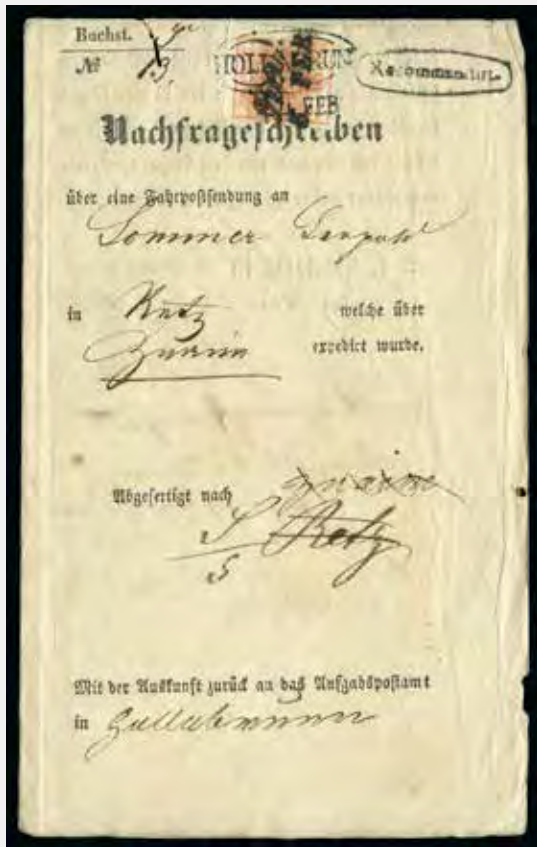 Buchst.
№ 13
HOLLABRUN
Recommandirt.
FEB
Nachfrageschreiben
über eine Fahrpostsendung an
Sommer Leopold
in Retz welche über
Znaim expedirt wurde.
Znaim
Abgefertigt nach
Retz
Mit der Auskunft zurück an das Aufgabspostamt
in Hollabrunn